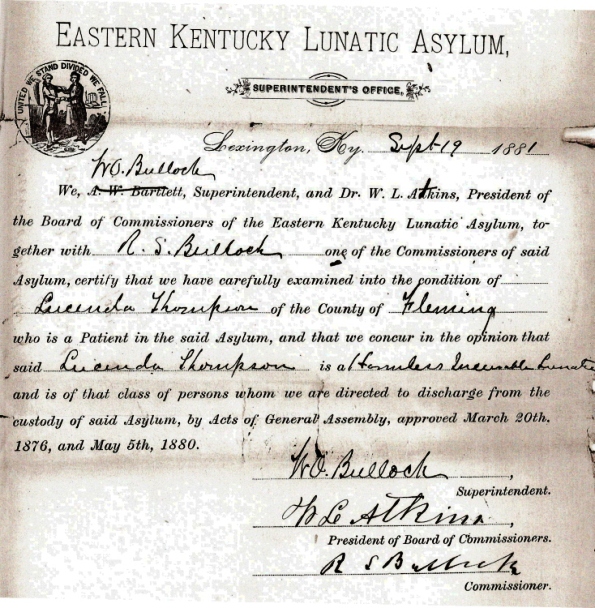 EASTERN KENTUCKY LUNATIC ASYLUM,
UNITED WE STAND DIVIDED WE FALL
SUPERINTENDENT'S OFFICE,
Lexington, Ky. Sept 19 1881
W.O. Bullock
We, A. W. Bartlett, Superintendent, and Dr. W. L. Atkins, President of
the Board of Commissioners of the Eastern Kentucky Lunatic Asylum, to-
gether with R. S. Bullock one of the Commissioners of said
Asylum, certify that we have carefully examined into the condition of
Lucenda Thompson of the County of Fleming
who is a Patient in the said Asylum, and that we concur in the opinion that
said Lucenda Thompson is a Harmless Incurable Lunatic
and is of that class of persons whom we are directed to discharge from the
custody of said Asylum, by Acts of General Assembly, approved March 20th.
1876, and May 5th, 1880.
W.O. Bullock,
Superintendent.
W L Atkins,
President of Board of Commissioners.
R S Bullock
Commissioner.